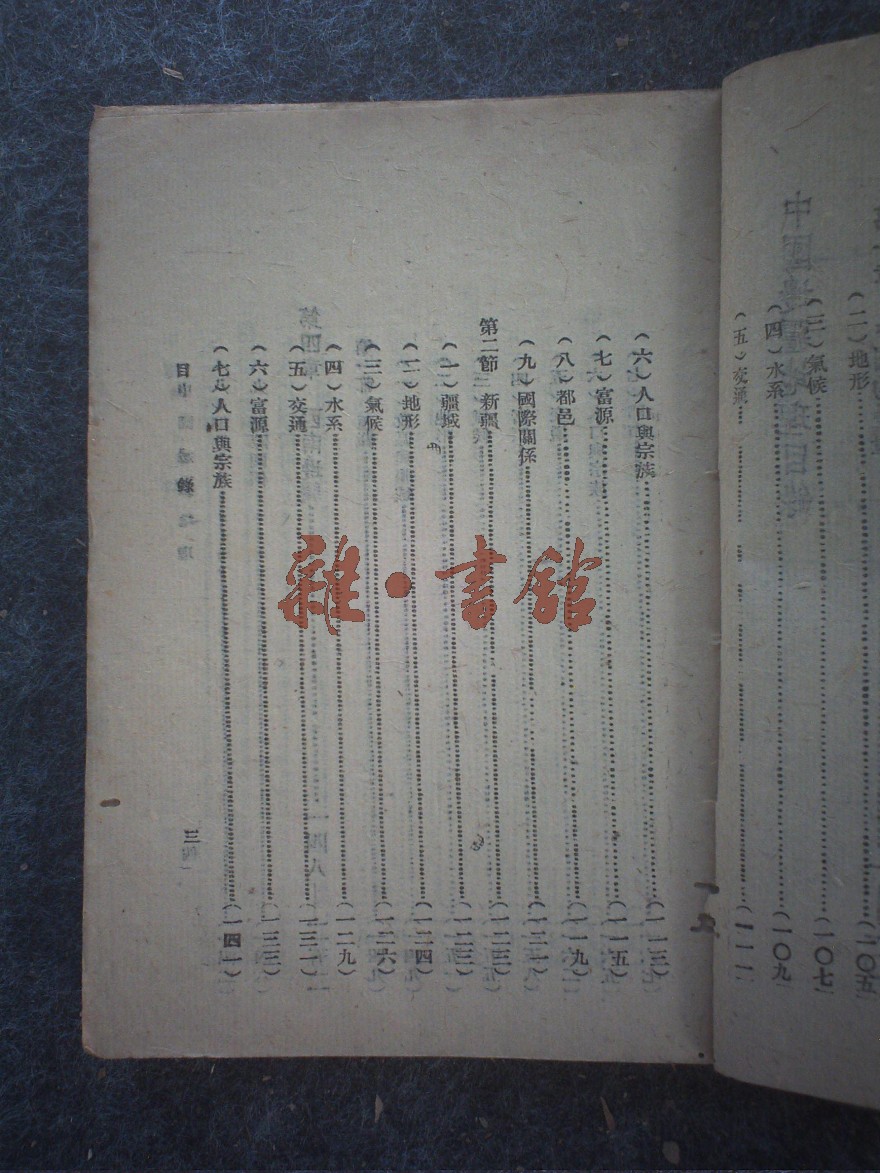 (二)地形……(一〇五
(三)氣候……(一〇七
(四)水系……(一〇九
(五)交通……(一一一
(六)人口與宗族……(一一三)
(七)富源……(一一五)
(八)都邑……(一一九)
(九)國際關係……(一二一)
第二節 新疆……(一二三)
(一)疆域……(一二三)
(二)地形……(一二四)
(三)氣候……(一二六)
(四)水系……(一二九)
(五)交通……(一三一)
(六)富源……(一三三)
(七)人口與宗族……(一四一)
目錄
三
雜·書館